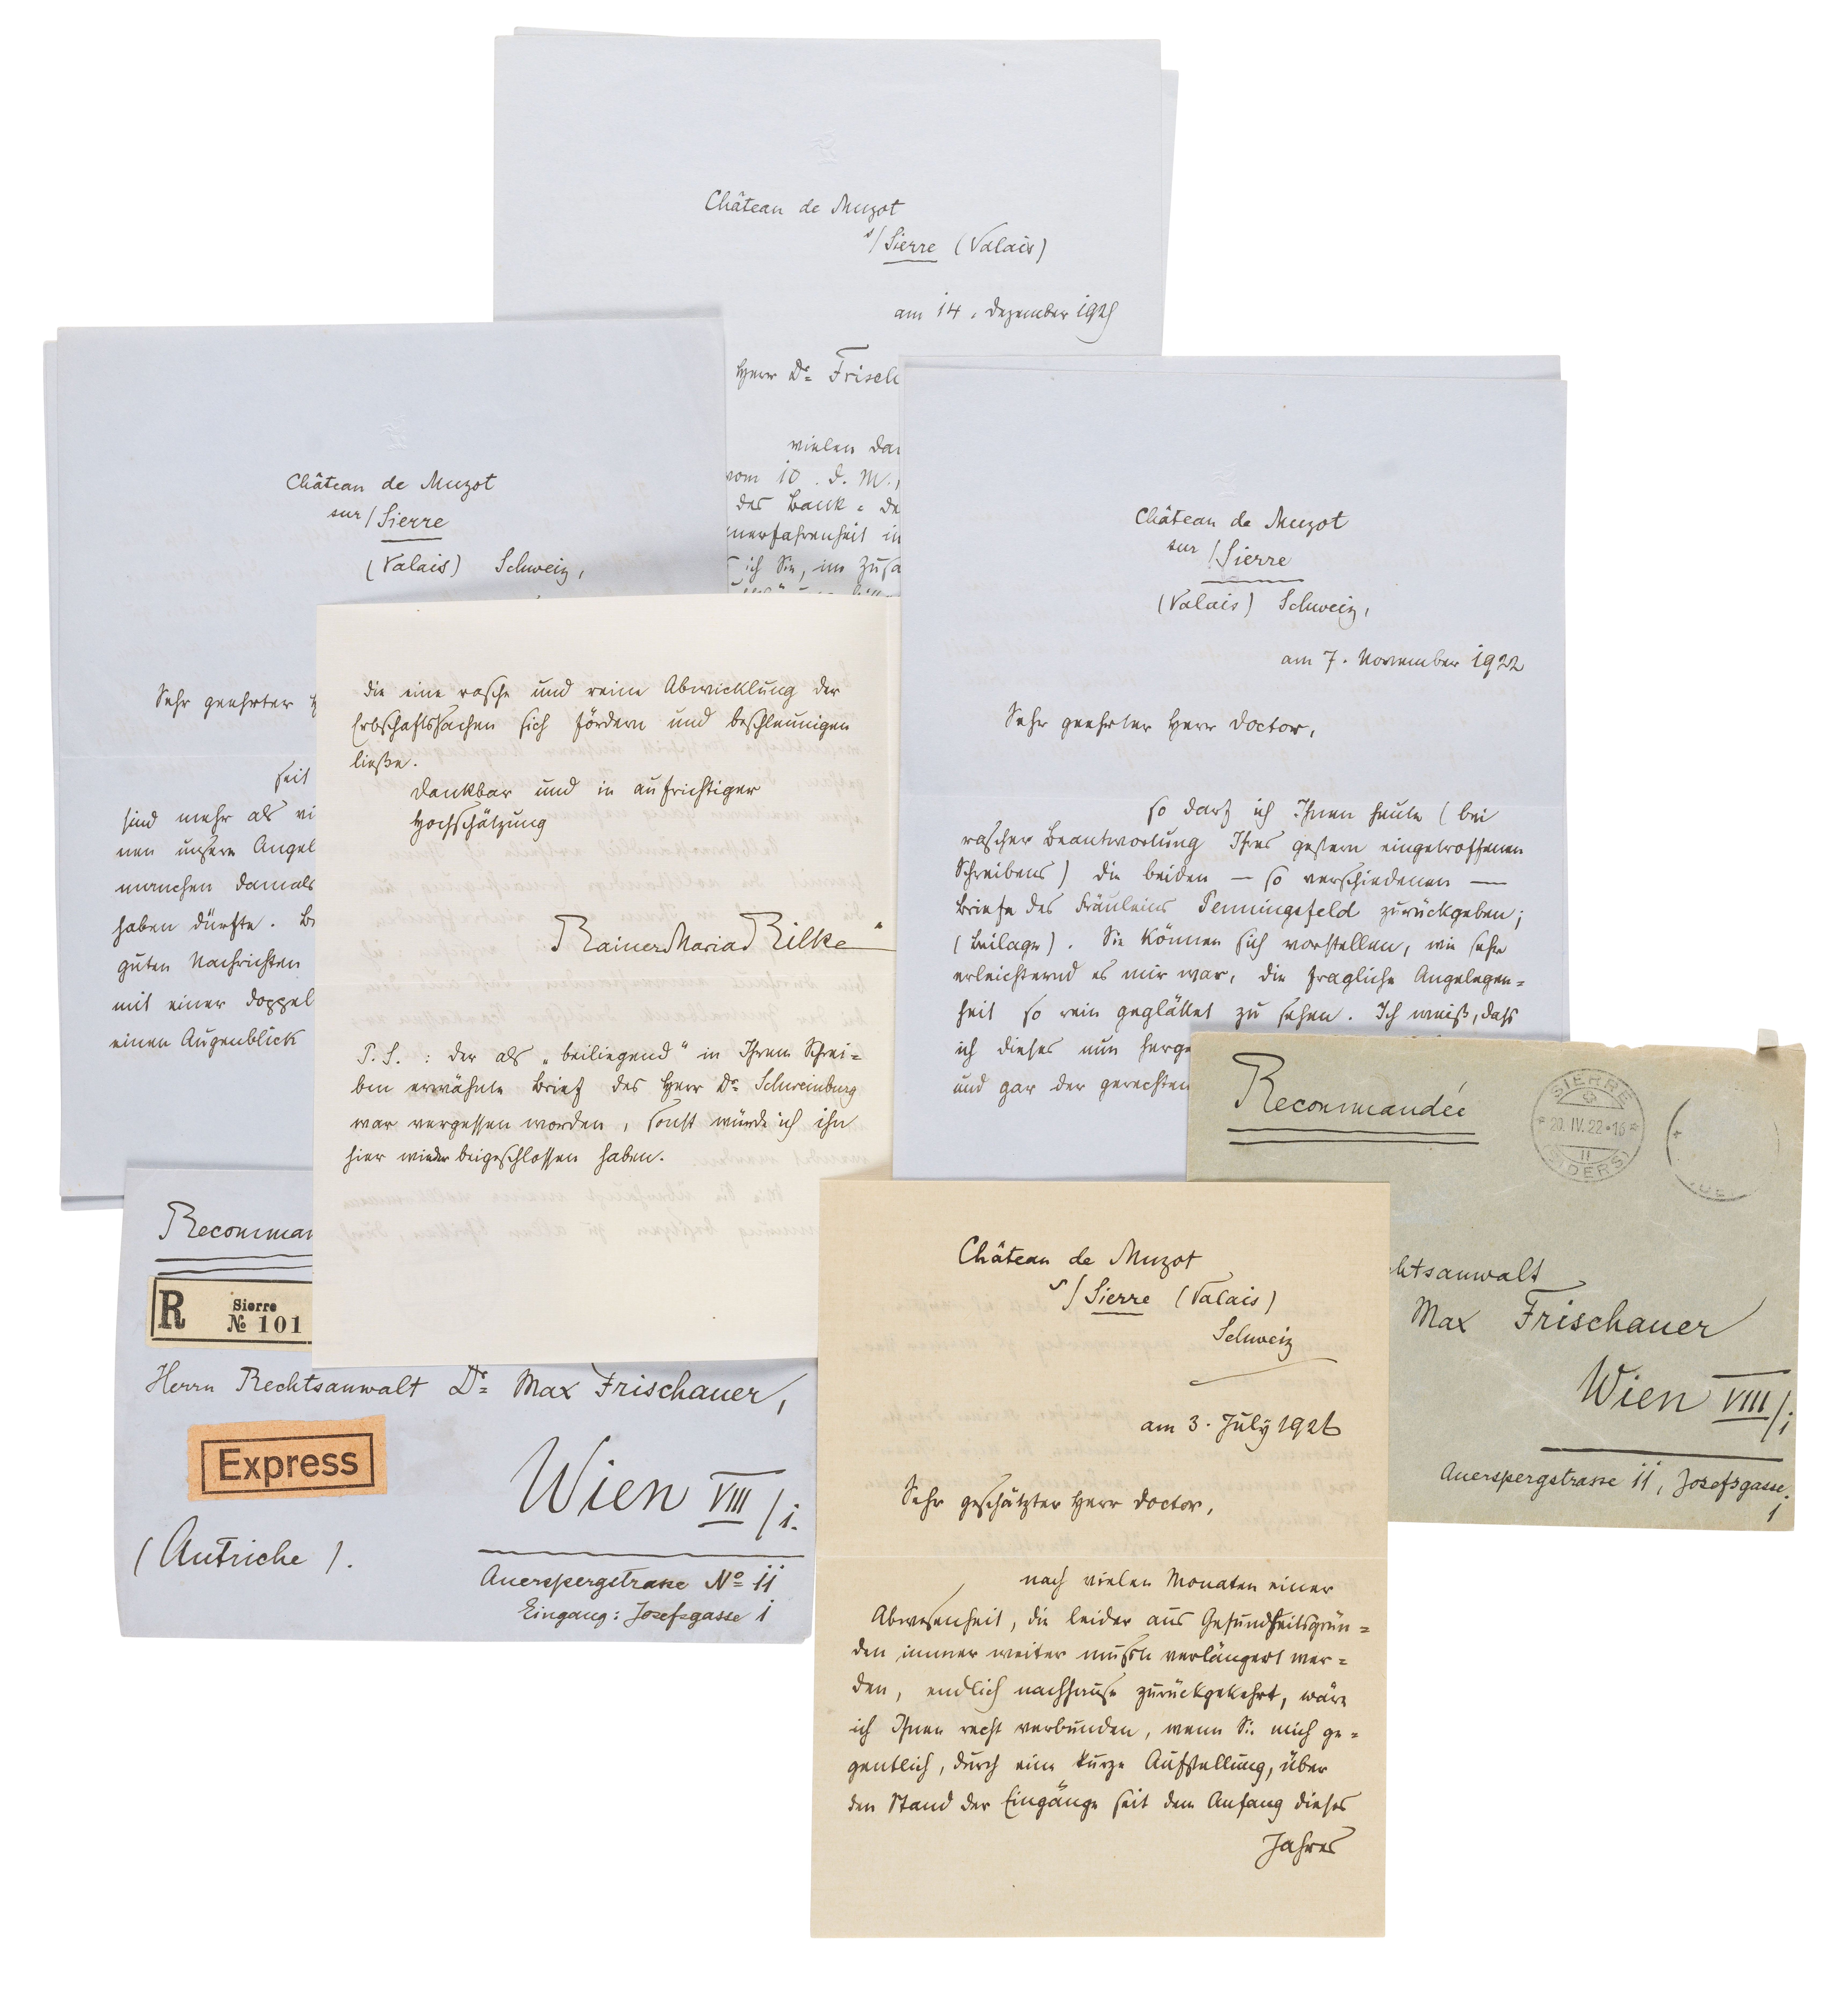 Château de Muzot
s/Sierre (Valais)
am 14. Dezember 1925
Herr Dr. Frisch
vielen Dan
vom 10. d. M.,
des Bank-De
nerfahrenheit in
ich Sie, im Zusa
Château de Muzot
sur/Sierre
(Valais) Schweiz,
Sehr geehrter H
seit
sind mehr als vi
nen unsere Angel
manchen damals
haben dürfte. Br
guten Nachrichten
mit einer doppel
einen Augenblick
Château de Muzot
sur/Sierre
(Valais) Schweiz,
am 7. November 1922
Sehr geehrter Herr Doctor,
so darf ich Ihnen heute (bei
rascher Beantwortung Ihres gestern eingetroffenen
Schreibens) die beiden — so verschiedenen —
Briefe des Fräuleins Penningsfeld zurückgeben;
(Beilage). Sie können sich vorstellen, wie sehr
erleichternd es mir war, die fragliche Angelegen=
heit so rein geglättet zu sehen. Ich weiß, dass
ich dieses nun herge
und gar der gerechten
die eine rasche und reine Abwicklung der
Erbschaftssachen sich fördern und beschleunigen
ließe.
Dankbar und in aufrichtiger
Hochschätzung
Rainer Maria Rilke
P.S.: der als „beiliegend" in Ihrem Schrei=
ben erwähnte Brief des Herr Dr. Schweinburg
war vergessen worden, sonst würde ich ihn
hier wieder beigeschlossen haben.
Recomman
R
Sierre
№ 101
Herrn Rechtsanwalt Dr. Max Frischauer,
Express
Wien VIII/1.
(Autriche).
Auerspergstrasse No 11
Eingang: Josefsgasse 1
Recommandée
SIERRE
20.IV.22-16
II
(SIDERS)
chtsanwalt
Max Frischauer
Wien VIII/1
Auerspergstrasse 11, Josefsgasse
1
Château de Muzot
s/Sierre (Valais)
Schweiz
am 3. July 1926
Sehr geschätzter Herr Doctor,
nach vielen Monaten einer
Abwesenheit, die leider aus Gesundheitsgrün=
den immer weiter mußte verlängert wer=
den, endlich nachhause zurückgekehrt, wäre
ich Ihnen recht verbunden, wenn Sie mich ge=
gentlich, durch eine kurze Aufstellung, über
den Stand der Eingänge seit dem Anfang dieses
Jahres